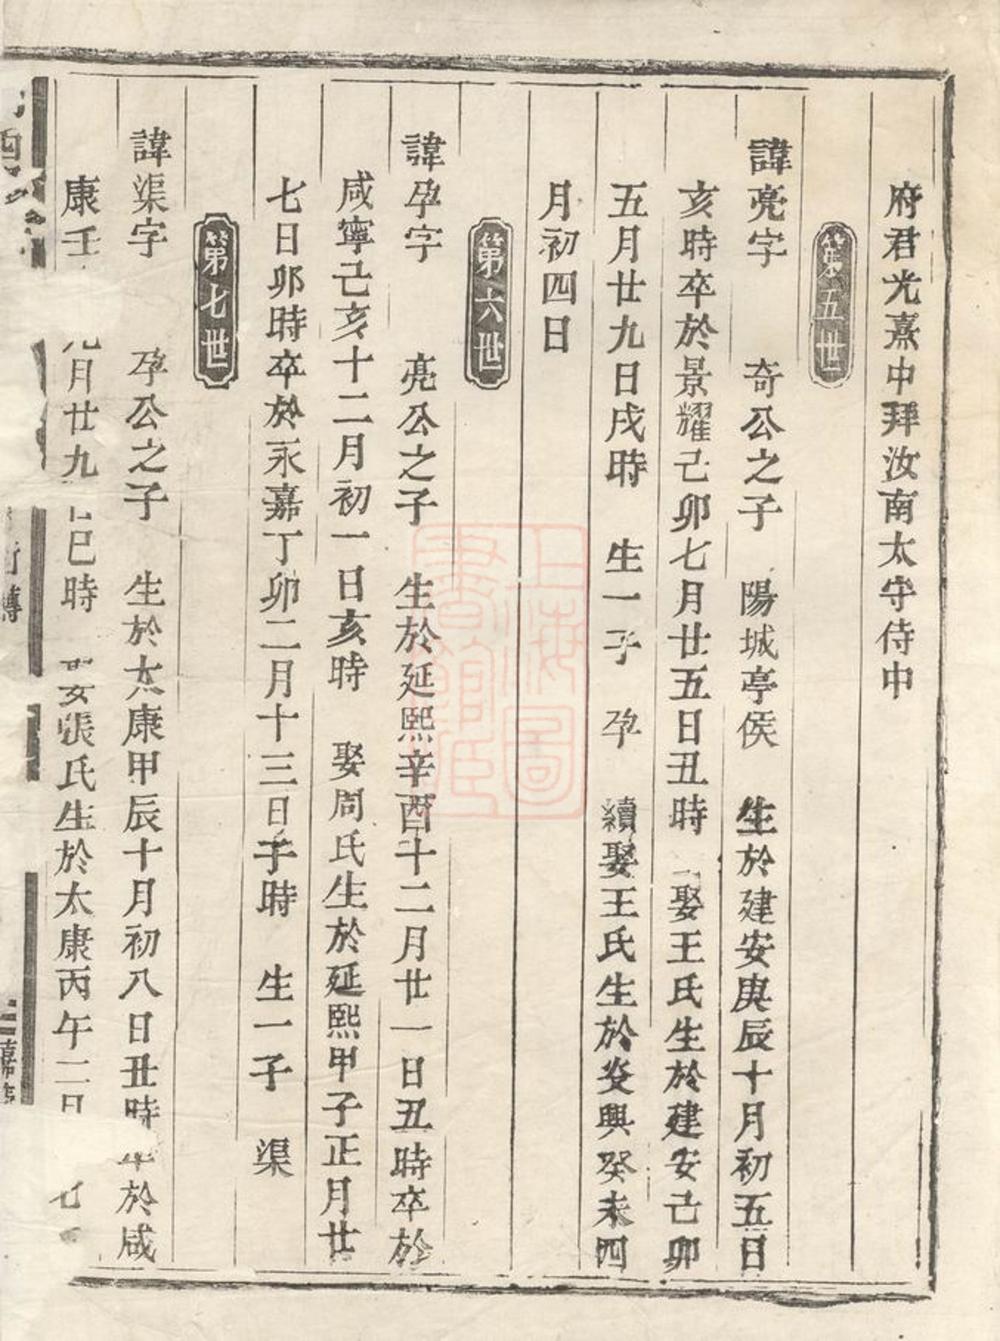 府君光熹中拜汝南太守侍中
第五世
諱亮字 奇公之子 陽城亭侯 生於建安庚辰十月初五日
亥時卒於景耀己卯七月廿五日丑時 娶王氏生於建安己卯
五月廿九日戌時 生一子 孕 續娶王氏生於炎興癸未四
月初四日
第六世
諱孕字 亮公之子 生於延熙辛酉十二月廿一日丑時卒於
咸寧己亥十二月初一日亥時 娶周氏生於延熙甲子正月廿
七日卯時卒於永嘉丁卯二月十三日子時 生一子 渠
第七世
諱渠字 孕公之子 生於太康甲辰十月初八日丑時卒於咸
康壬 月廿九 巳時 娶張氏生於太康丙午二月
上海圖書館藏